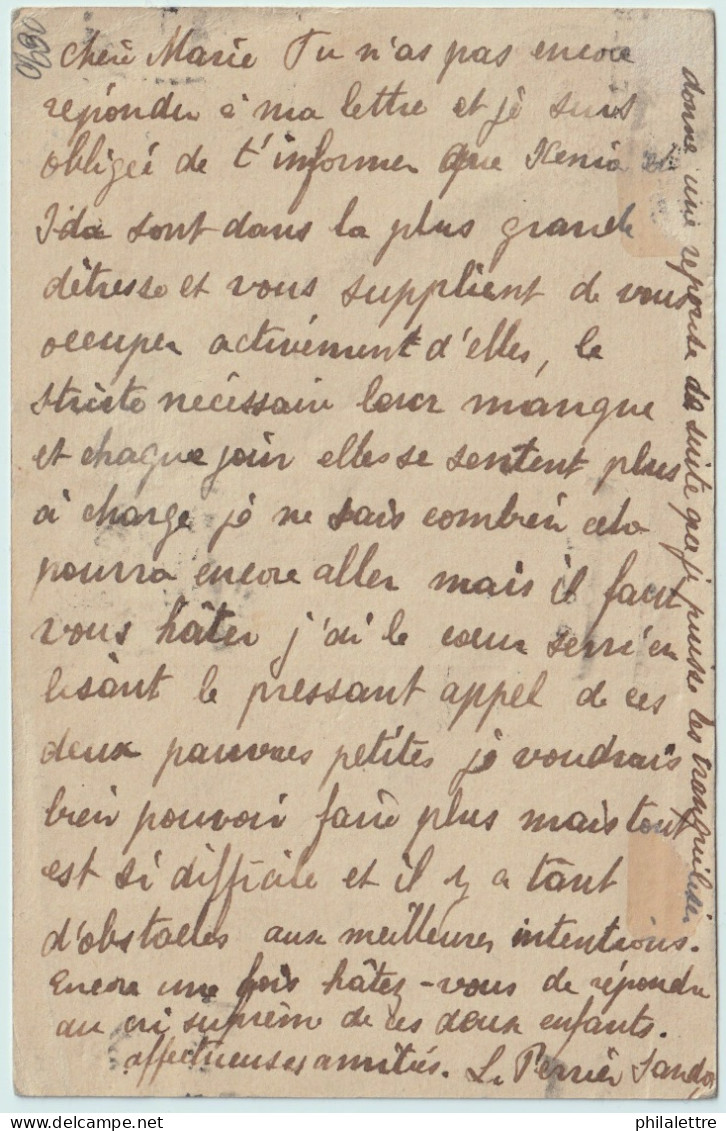 Cheri Marie Tu n'as pas encore
répondu à ma lettre et je suis
obligée de t'informer que Xenia et
Ida sont dans la plus grande
détresse et vous supplient de vous
occuper activement d'elles, le
stricte nécessaire leur manque
et chaque jour elles se sentent plus
à charge je ne sais combien cela
pourra encore aller mais il faut
vous hâter j'ai le cœur serré en
lisant le pressant appel de ces
deux pauvres petites je voudrais
bien pouvoir faire plus mais tout
est si difficile et il y a tant
d'obstacles aux meilleures intentions.
Encore une fois hâtez-vous de répondre
au cri suprême de ces deux enfants.
affectueuses amitiés. L. Perrier Sandoz
donne une reponse de suite que je puisse les tranquiliser
philalettre